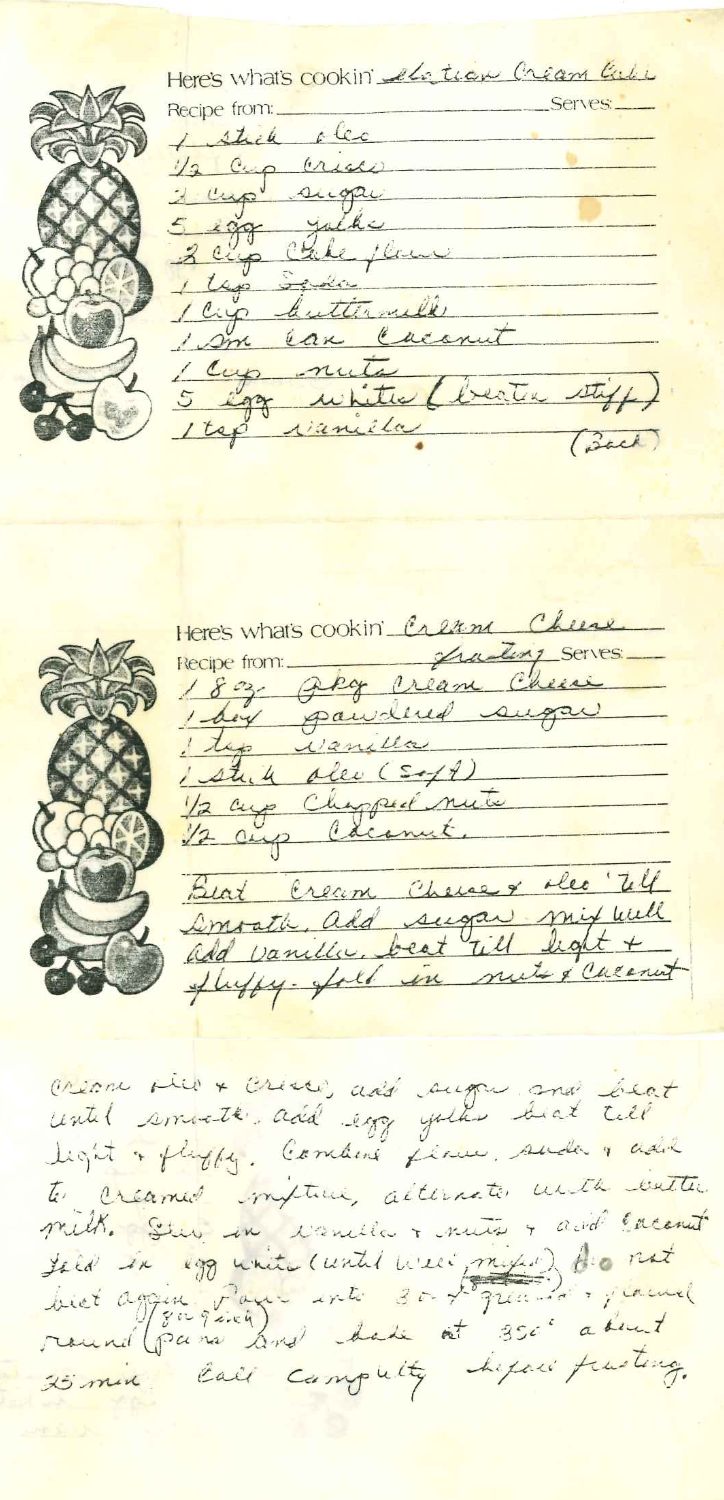 Here's what's cookin' Cream Cake
Recipe from: Serves:
1 stick oleo
1/2 Cup Crisco
2 cup sugar
5 egg yolks
2 cup Cake flour
1 tsp Soda
1 Cup buttermilk
1 sm can Coconut
1 Cup nuts
5 egg whites (beaten stiff)
1 tsp vanilla
(Back)
Here's what's cookin' Cream Cheese
Recipe from: frosting Serves:
1 8 oz. pkg cream cheese
1 box powdered sugar
1 tsp vanilla
1 stick oleo (soft)
1/2 cup Chopped nuts
1/2 cup Coconut.
Beat cream cheese & oleo 'till
smooth. add sugar mix well
add vanilla. beat till light +
fluffy. fold in nuts & Coconut
Cream oleo + Crisco, add sugar and beat
until smooth. add egg yolks beat till
light + fluffy. Combine flour, soda & add
to creamed mixture, alternate with butter
milk. Stir in vanilla + nuts + add Coconut
Fold in egg white (until well mixed) do not
beat again Pour into 3 greased + floured
(8 or 9 inch)
round pans and bake at 350° about
25 min before frosting.